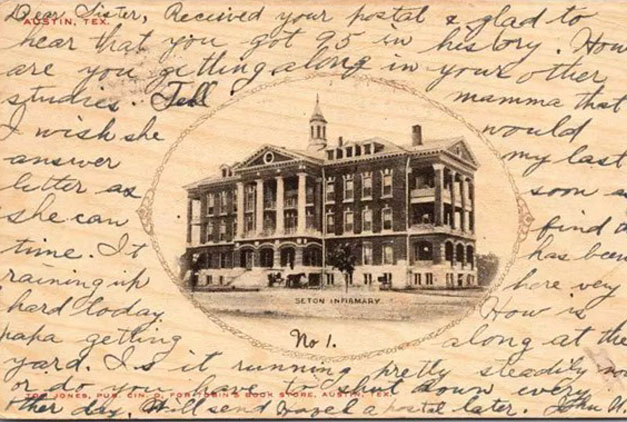 Dear Sister, Received your postal & glad to
AUSTIN, TEX.
hear that you got 95 in history. How
are you getting along in your other
studies. Tell mamma that
I wish she would
answer my last
letter as soon as
she can find
time. It has been
raining here very
hard today. How is
papa getting along at the
yard. Is it running pretty steadily now
or do you have to shut down every
other day. Will send Hazel a postal later. John
SETON INFIRMARY
No 1.
TOM JONES, PUB. CIN. O. FOR TOBIN'S BOOK STORE, AUSTIN, TEX.